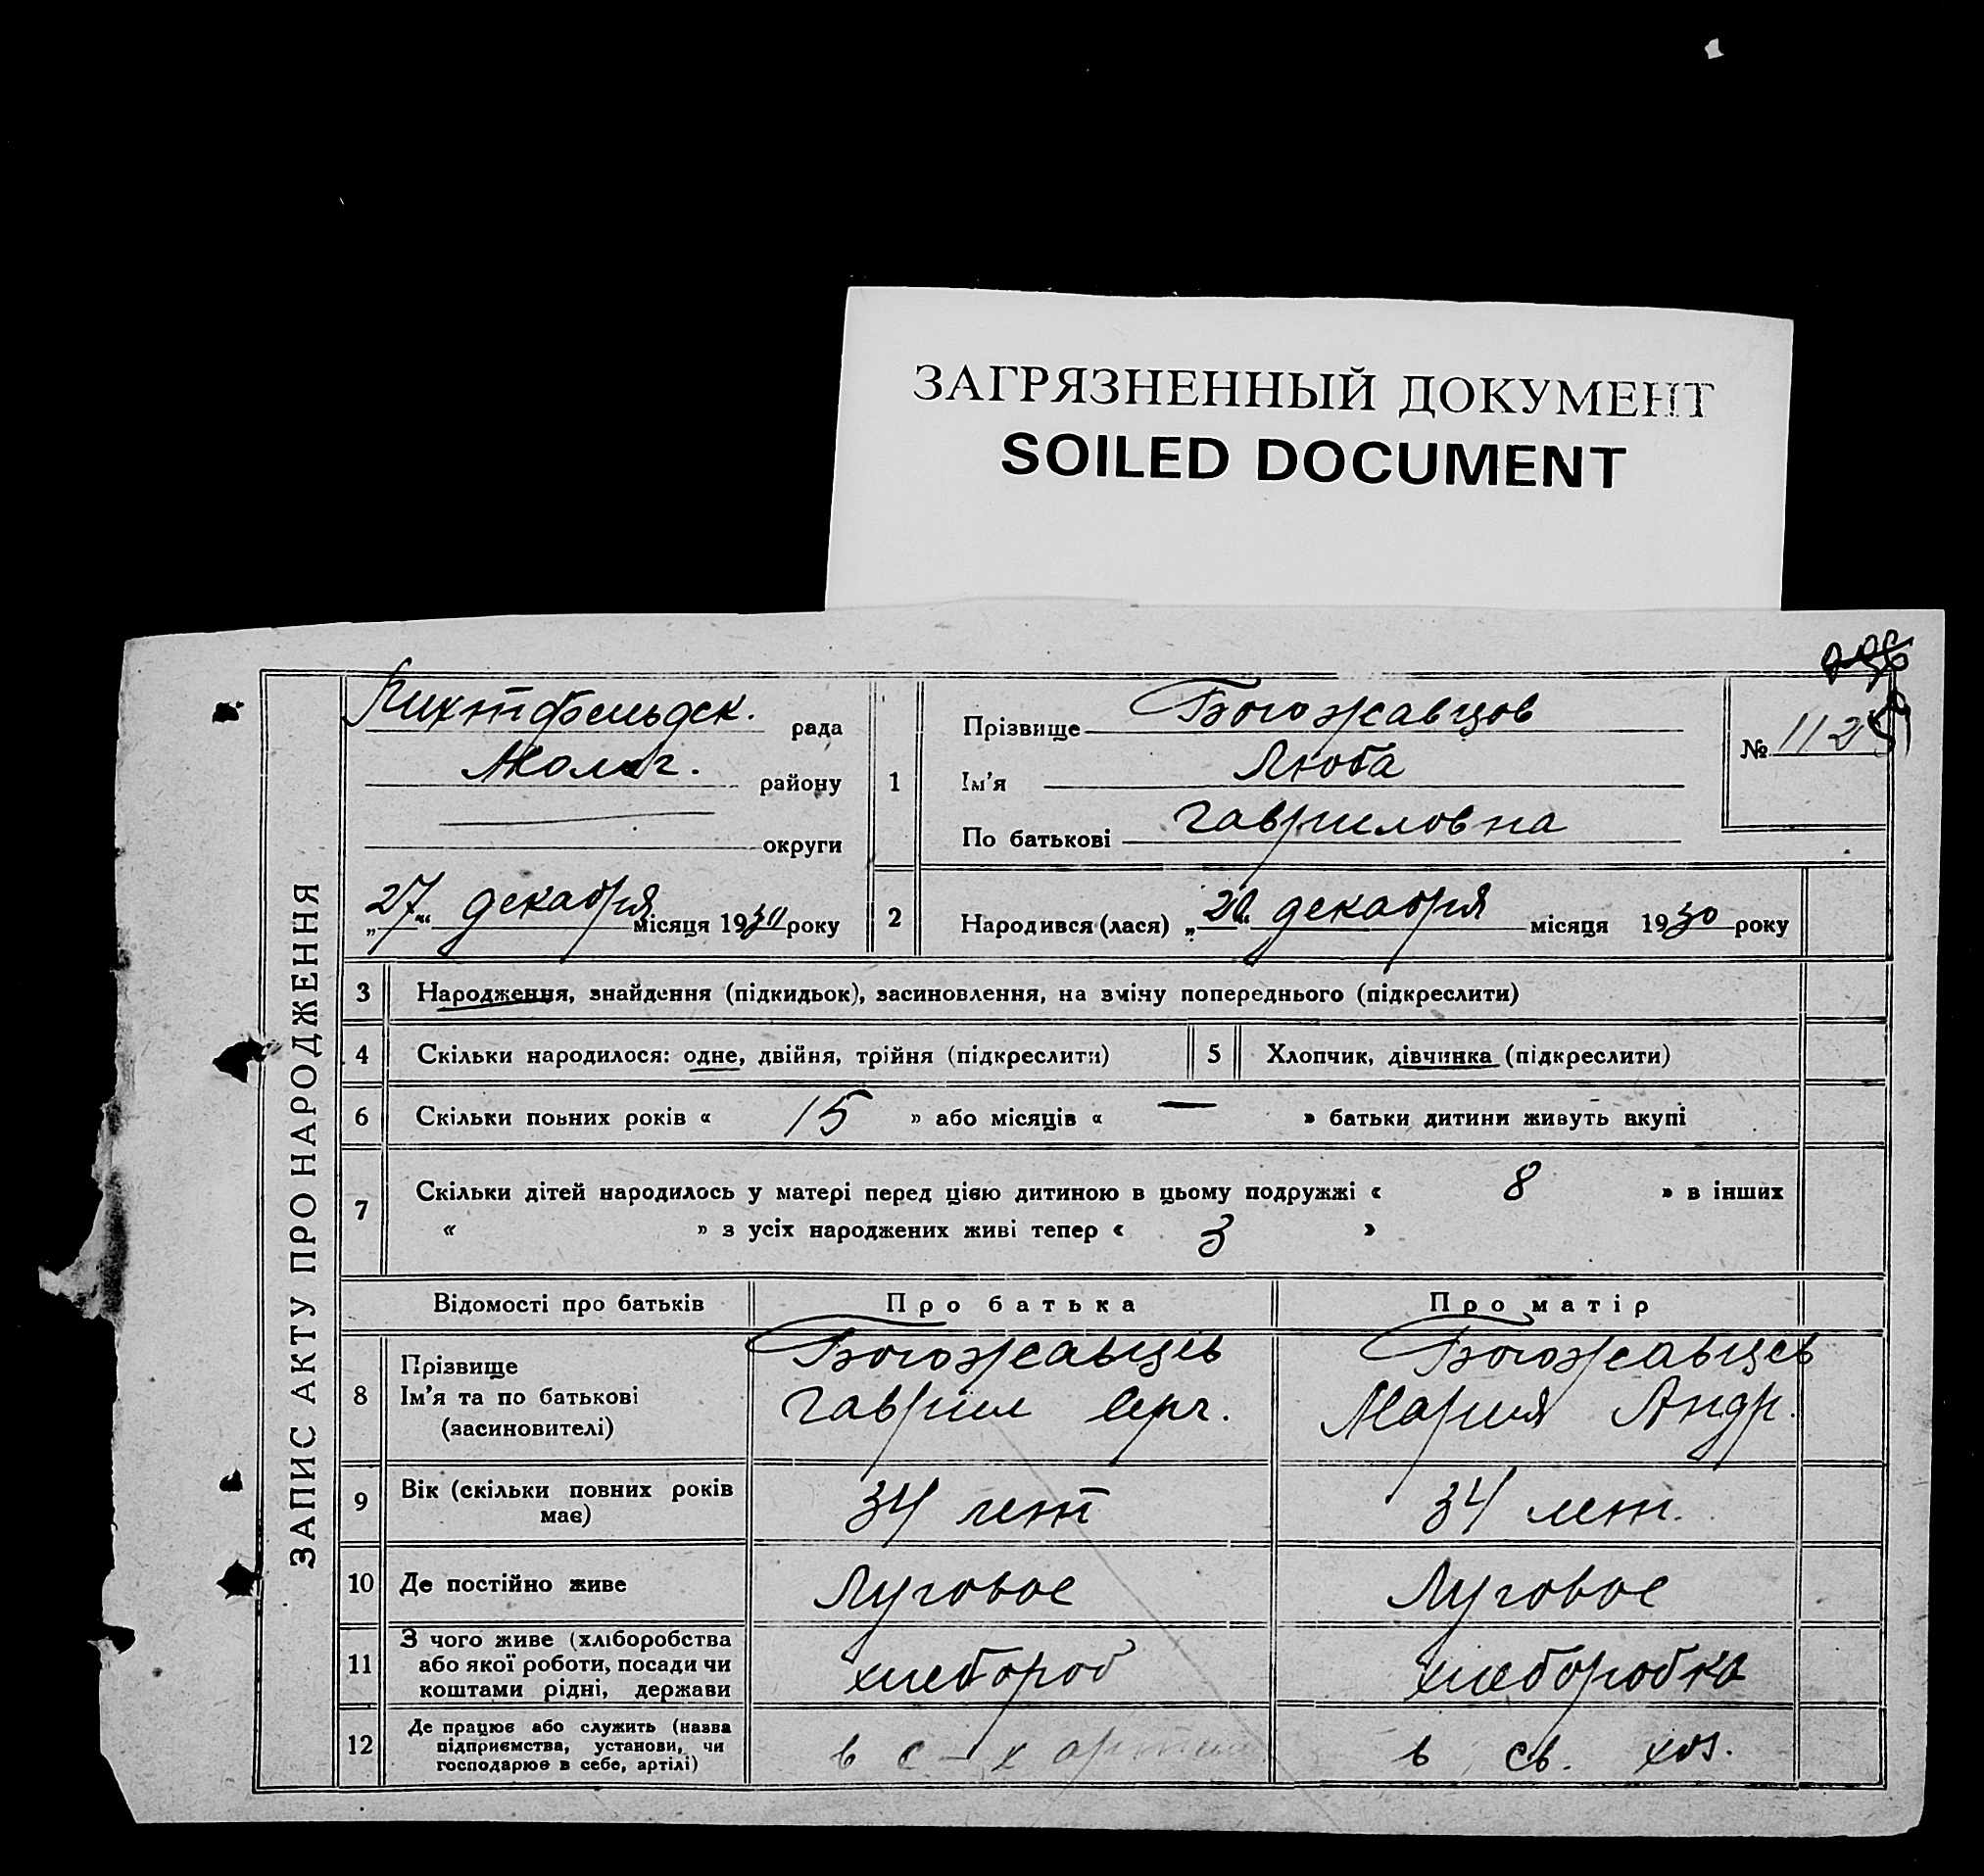 ЗАГРЯЗНЕННЫЙ ДОКУМЕНТ
SOILED DOCUMENT
ЗАПИС АКТУ ПРО НАРОДЖЕННЯ
Лихтфельдск. рада
Молоч. району
округи
„27“ декабря місяця 1930 року
1
Прізвище Богожавцов
Ім'я Люба
По батькові Гавриловна
№ 112
2 Народився (лася) „20“ декабря місяця 1930 року
3 Народження, знайдення (підкидьок), засиновлення, на зміну попереднього (підкреслити)
4 Скільки народилося: одне, двійня, трійня (підкреслити) 5 Хлопчик, дівчинка (підкреслити)
6 Скільки повних років « 15 » або місяців « — » батьки дитини живуть вкупі
7 Скільки дітей народилось у матері перед цією дитиною в цьому подружжі « 8 » в інших
« » з усіх народжених живі тепер « 3 »
Відомості про батьків Про батька Про матір
8 Прізвище
Ім'я та по батькові
(засиновителі)
Богожавцев
Гаврил Серг.
Богожавцев
Мария Андр.
9 Вік (скільки повних років
має)
34 лет 34 лет.
10 Де постійно живе Луговое Луговое
11 З чого живе (хліборобства
або якої роботи, посади чи
коштами рідні, держави
хлебороб хлеборобка
12 Де працює або служить (назва
підприємства, установи, чи
господарює в себе, артілі)
в с-х артели в св. хоз.